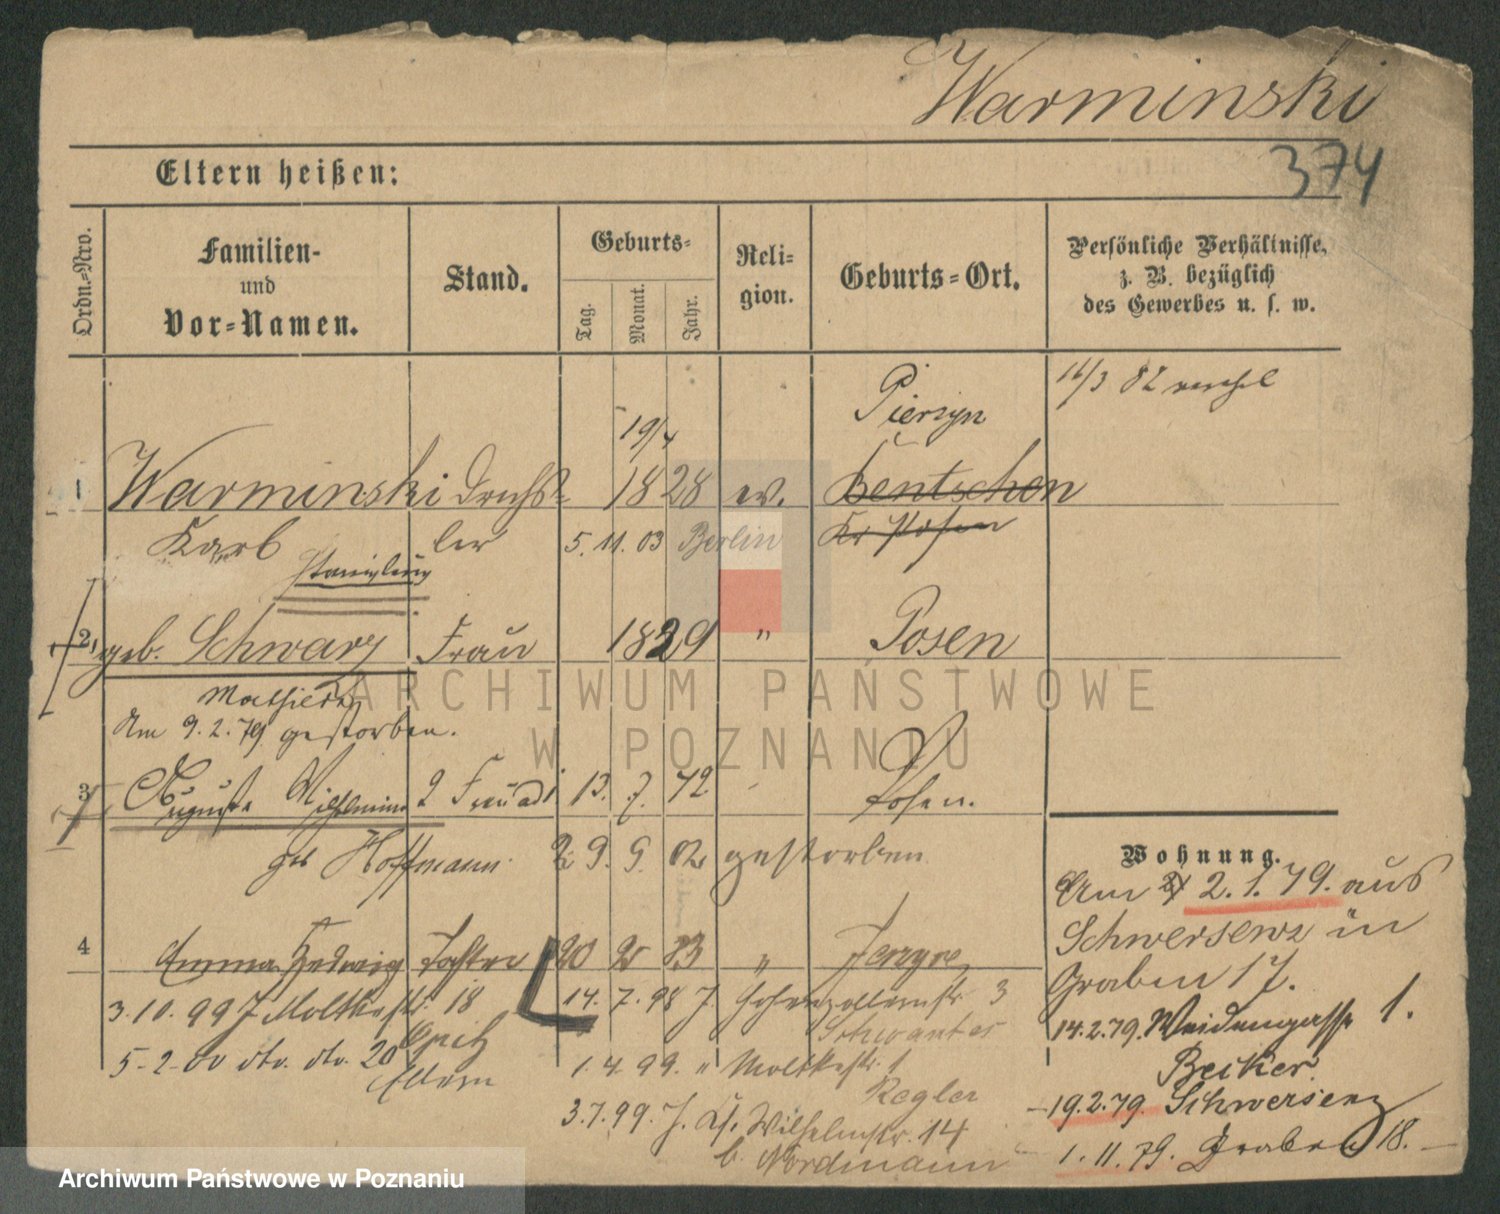 Warminski
374
Eltern heißen:
Ordn.-Nro.
Familien-
und
Vor-Namen.
Stand.
Geburts-
Tag.
Monat.
Jahr.
Reli-
gion.
Geburts-Ort.
Persönliche Verhältnisse,
z. B. bezüglich
des Gewerbes u. s. w.
82
19/4
1 Warminski Drechs- 1828 ev. Bentschen
Karl ler 5. 11. 03 Berlin Kr Posen
2, geb. Schwarz Frau 1829 " Posen
Am 9. 2. 79 gestorben.
3 Auguste Wilhelmine 2 Frau 13. 7. 42 Posen.
geb Hoffmann. 29. 9. 02 gestorben
4 Emma Hedwig Tochter 20 2 83 "
3. 10. 99 J Moltkestr. 18
Opitz
5-2-00 dto. dto. 20
Eltern
14. 7. 98 J Hohenzollernstr 3
Schwantes
1. 4. 99. " Moltkestr. 1
Regler
3. 7. 99. J. Wilhelmstr. 14
b. Nordmann
Wohnung.
Am 2. 1. 79. aus
Schwersenz in
Graben 17.
14. 2. 79. Weidengasse 1.
Beiker.
19. 2. 79. Schwersenz
1. 11. 79. Graben 18.
ARCHIWUM PAŃSTWOWE
W POZNANIU
Archiwum Państwowe w Poznaniu